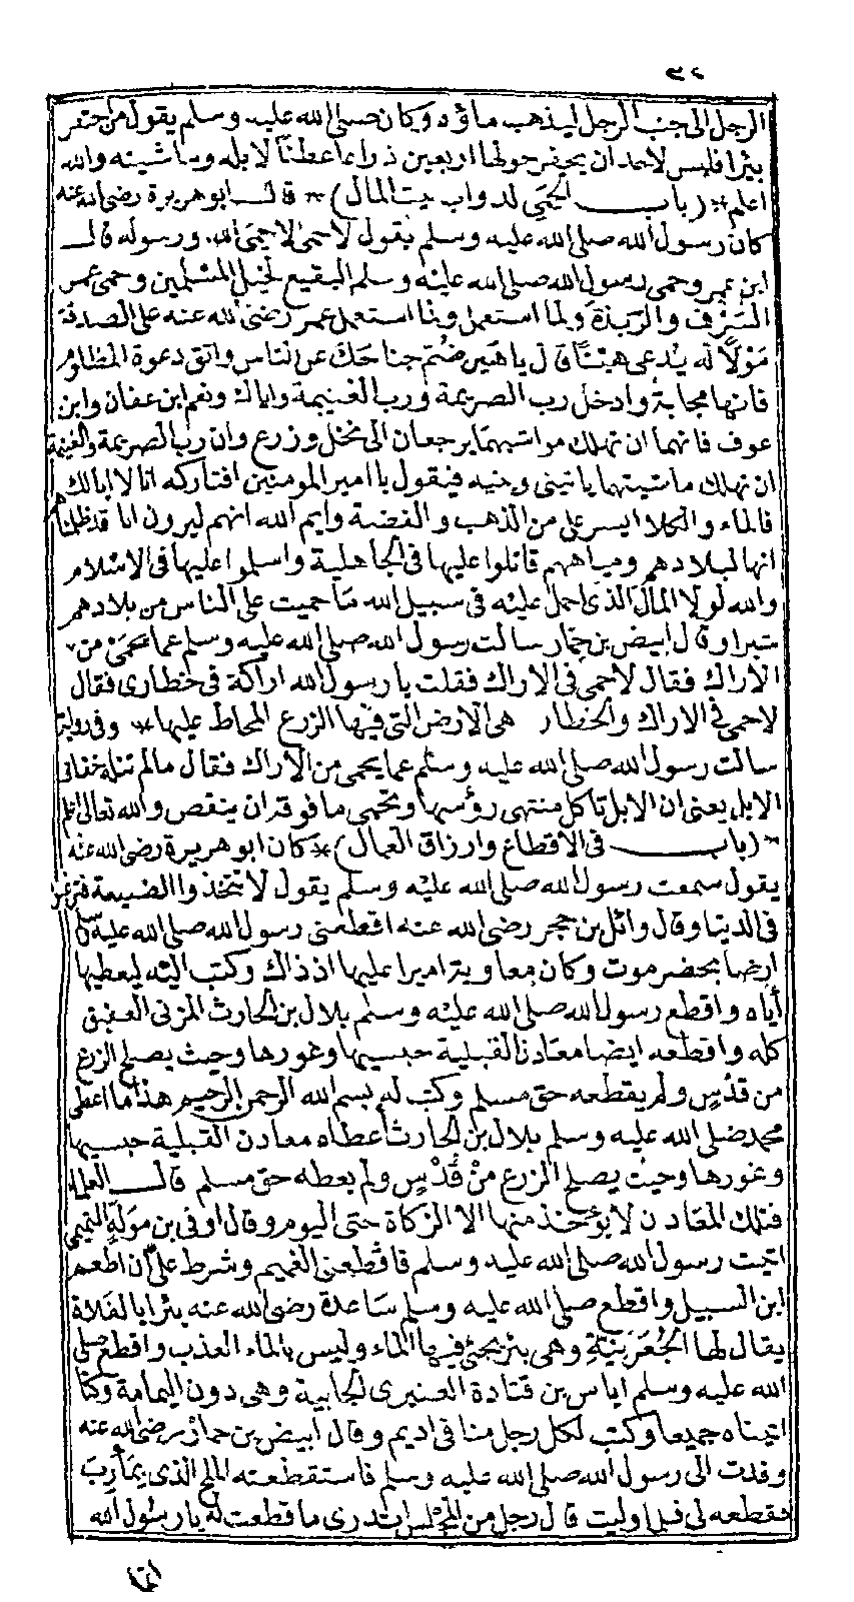 ٣٤
الرجل الى جنب الرجل ليذهب ماؤه وكان صلى الله عليه وسلم يقول من احتفر
بئرا فليس لاحد ان يحفر حولها اربعين ذراعا عطنا لابله وماشيته والله
اعلم * (باب الحمى لدواب بيت المال) * قال ابو هريرة رضى الله عنه
كان رسول الله صلى الله عليه وسلم يقول لا حمى الا حمى الله ورسوله قال
ابن عمر وحمى رسول الله صلى الله عليه وسلم البقيع لخيل المسلمين وحمى عمر
الشرف والربذة ولما استعمل عمر رضى الله عنه على الصدقة
مولا له يدعى هنيا قال يا هنى ضم جناحك عن الناس واتق دعوة المظلوم
فانها مجابة وادخل رب الصريمة ورب الغنيمة واياك ونعم ابن عفان وابن
عوف فانهما ان تهلك مواشيهما يرجعان الى نخل وزرع وان رب الصريمة والغنيمة
ان تهلك ماشيتهما ياتينى وبنيه فيقول يا امير المومنين افتاركه انا لا ابالك
فالماء والكلا ايسر على من الذهب والفضة وايم الله انهم ليرون انا قد ظلمناهم
انها لبلادهم ومياههم قاتلوا عليها فى الجاهلية واسلموا عليها فى الاسلام
والله لولا المال الذى احمل عليه فى سبيل الله ما حميت على الناس من بلادهم
شبرا وقال ابيض بن حمار سالت رسول الله صلى الله عليه وسلم عما يحمى من
الاراك فقال لا حمى فى الاراك فقلت يا رسول الله اراكة فى حظارى فقال
لا حمى فى الاراك والحظار هى الارض التى فيها الزرع المحاط عليها * وفى رواية
سالت رسول الله صلى الله عليه وسلم عما يحمى من الاراك فقال ما لم تنله خفاف
الابل يعنى ان الابل تاكل منتهى رؤسها ويحمى ما فوقه ان ينقص والله تعالى اعلم
* (باب فى الاقطاع وارزاق العمال) * كان ابو هريرة رضى الله عنه
يقول سمعت رسول الله صلى الله عليه وسلم يقول لا تتخذوا الضيعة فترغبوا
فى الدنيا وقال وائل بن حجر رضى الله عنه اقطعنى رسول الله صلى الله عليه وسلم
ارضا بحضرموت وكان معاوية اميرا عليها اذ ذاك وكتب اليه ليعطيها
اياه واقطع رسول الله صلى الله عليه وسلم بلال بن الحارث المزنى العقيق
كله واقطعه ايضا معادن القبلية جبسيها وغورها وحيث يصلح الزرع
من قدس ولم يقطعه حق مسلم وكتب له بسم الله الرحمن الرحيم هذا ما اعطى
محمد صلى الله عليه وسلم بلال بن الحارث اعطاه معادن القبلية جبسيها
وغورها وحيث يصلح الزرع من قدس ولم يعطه حق مسلم قال العلماء
فتلك المعادن لا يوخذ منها الا الزكاة حتى اليوم وقال اوفى بن مولة التميمى
اتيت رسول الله صلى الله عليه وسلم فاقطعنى الغميم وشرط على ان اطعم
ابن السبيل واقطع صلى الله عليه وسلم ساعدة رضى الله عنه بئرا بالفلاة
يقال لها الجعرينة وهى بئر يجئ فيها الماء وليس بالماء العذب واقطع صلى
الله عليه وسلم اياس بن قتادة العنبرى الجابية وهى دون اليمامة وكنا
اتيناه جميعا وكتب لكل رجل منا فى اديم وقال ابيض بن حمار رضى الله عنه
وفدت الى رسول الله صلى الله عليه وسلم فاستقطعته الملح الذى بمارب
فقطعه لى فلما وليت قال رجل من المجلس اتدرى ما قطعت له يا رسول الله